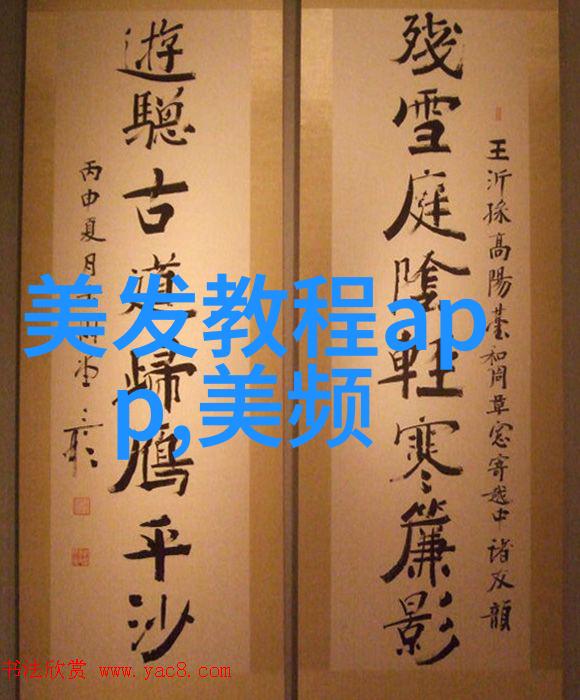 殘雪庭陰輕寒簾影
王沂孫高陽臺和周草窓寄越中諸友韻
遊驄古道歸鴈平沙
丙申夏月
美发教程ap
p,美频
书法欣赏 www.yac8.com